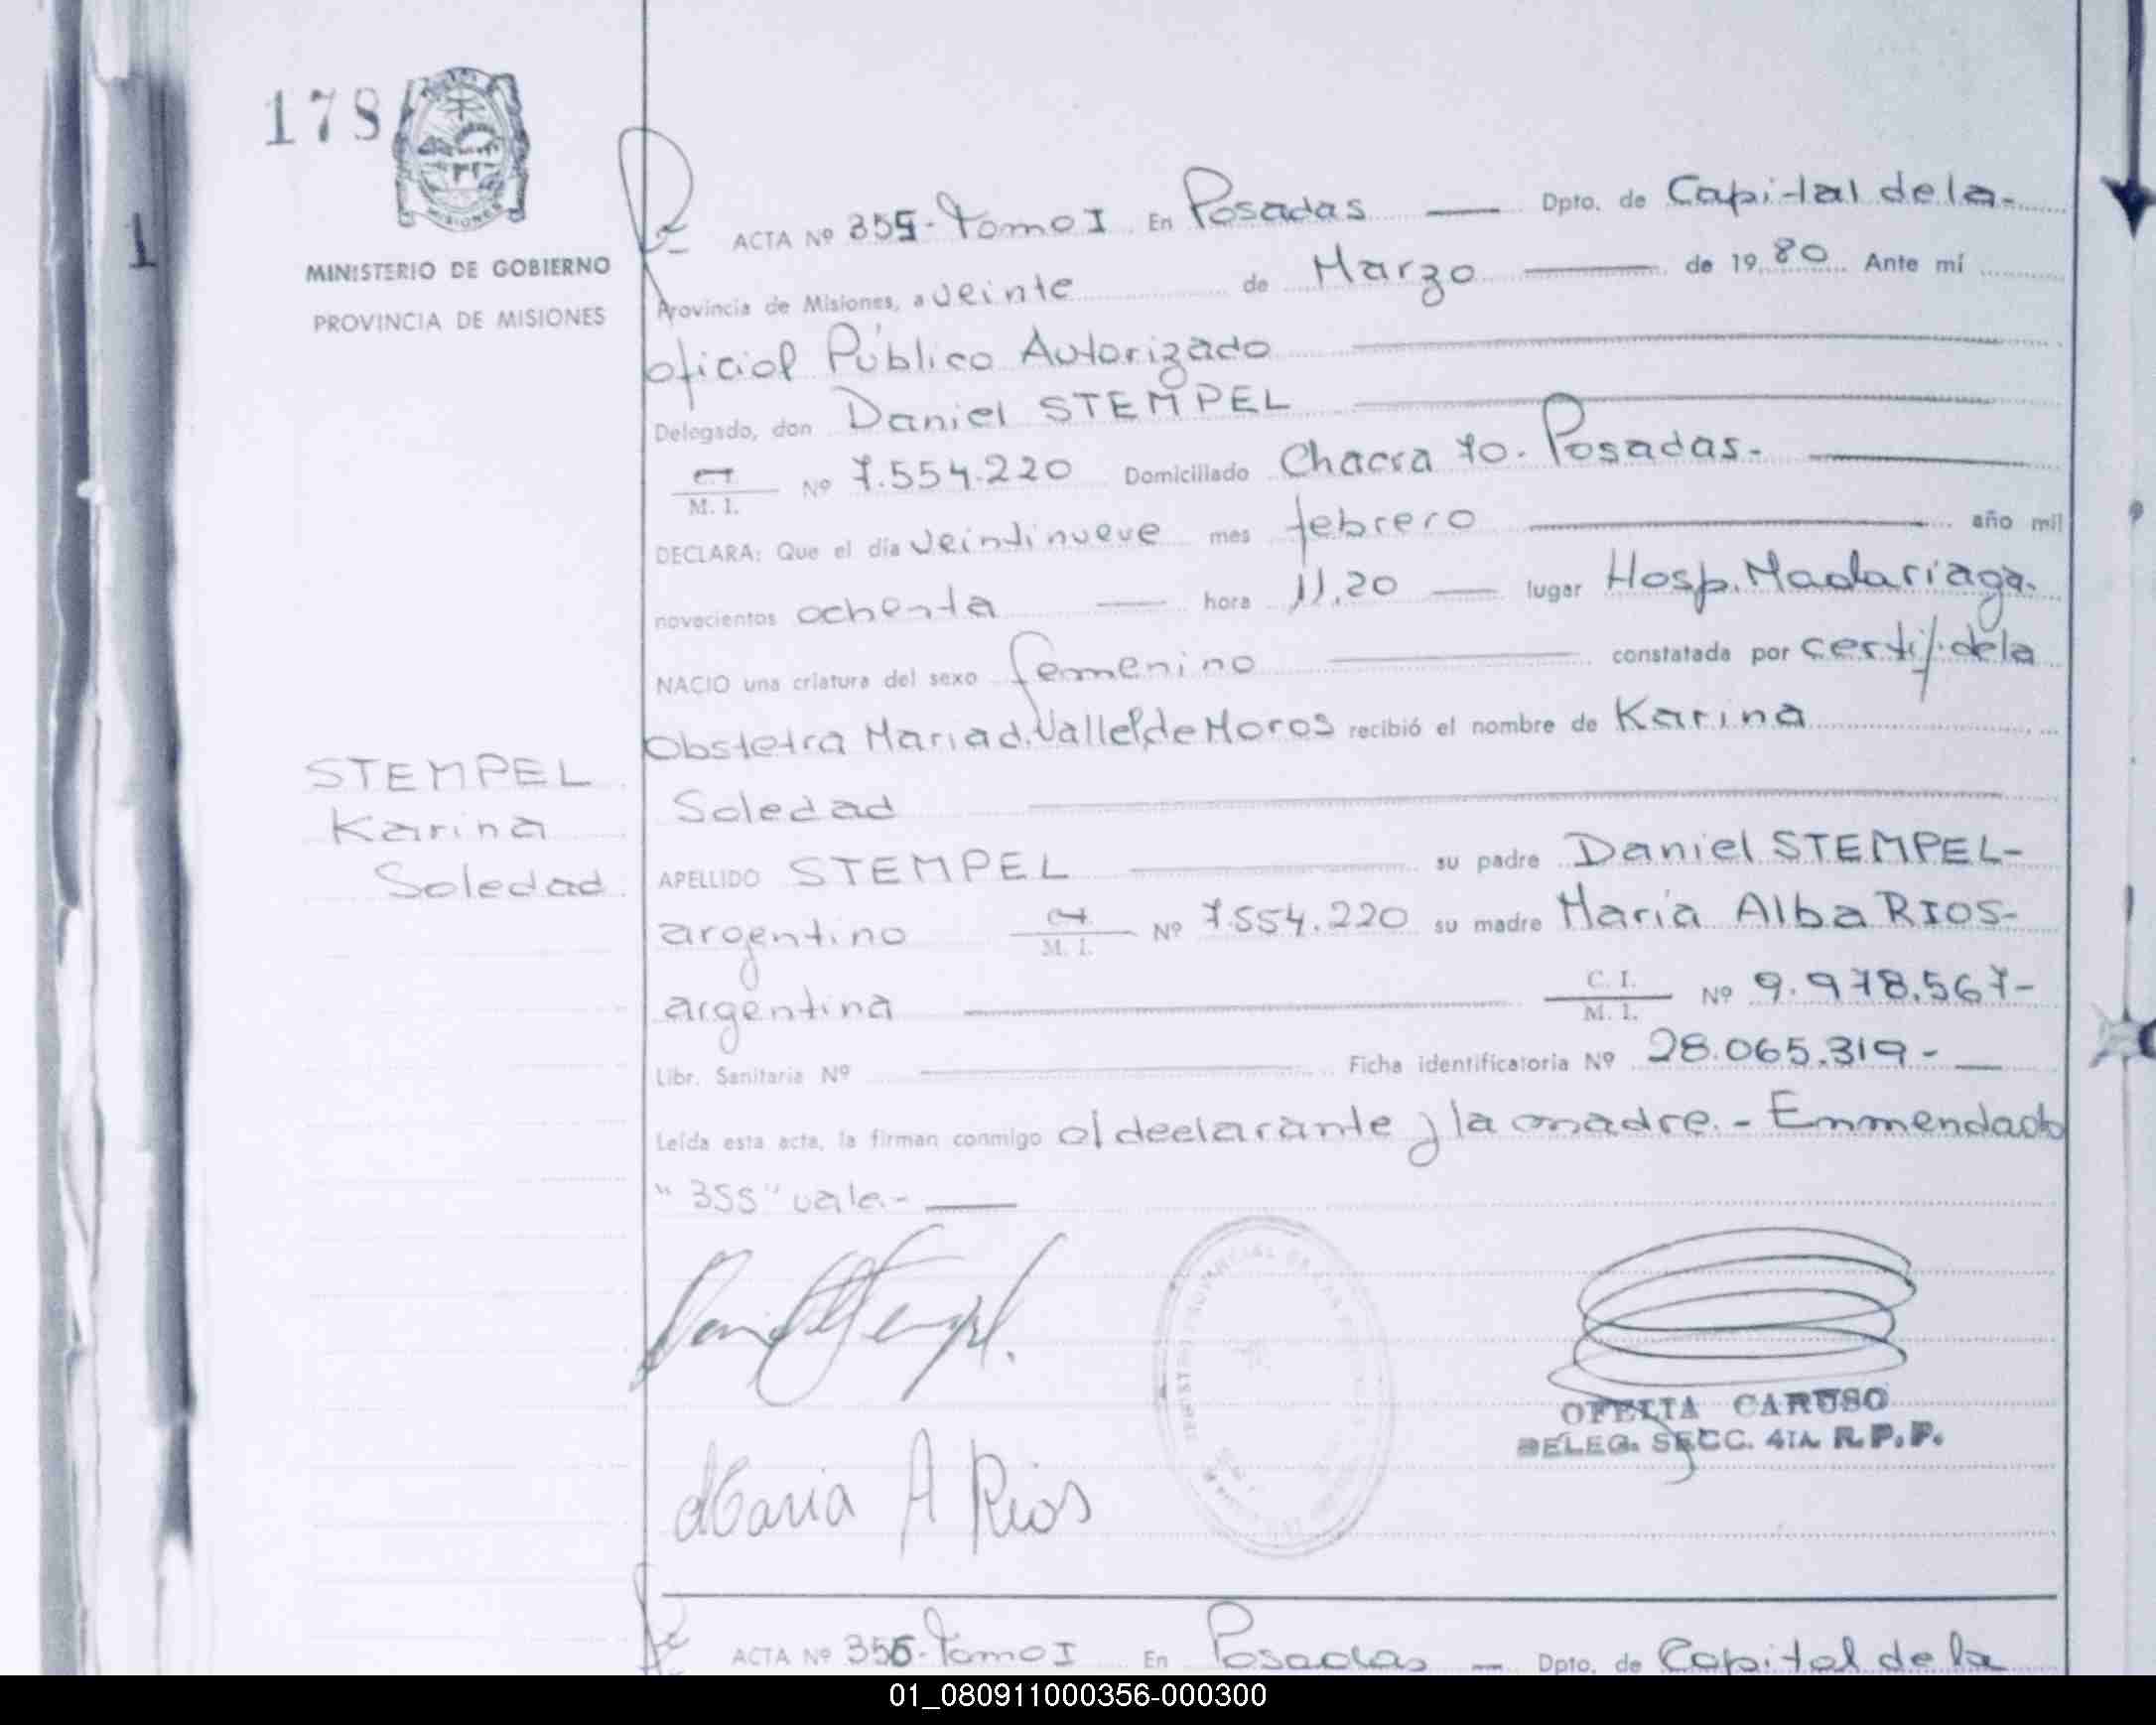 178
1
MINISTERIO DE GOBIERNO
PROVINCIA DE MISIONES
ACTA Nº 355- Tomo I En Posadas — Dpto. de Capital de la-
Provincia de Misiones, a veinte de Marzo — de 19 80 Ante mí
oficial Público Autorizado
Delegado, don Daniel STEMPEL
M. I. Nº 7.554.220 Domiciliado Chacra 70. Posadas.-
DECLARA: Que el día veintinueve mes febrero — año mil
novecientos ochenta — hora 11,20 — lugar Hosp. Madariaga.
NACIO una criatura del sexo femenino — constatada por certif. de la
Obstetra Maria d. Valle de Moros recibió el nombre de Karina
Soledad
STEMPEL
Karina
Soledad
APELLIDO STEMPEL — su padre Daniel STEMPEL-
argentino M. I. Nº 7.554.220 su madre María Alba RIOS-
argentina — C. I. M. I. Nº 9.978.567-
Libr. Sanitaria Nº — Ficha identificatoria Nº 28.065.319-
Leída esta acta, la firman conmigo el declarante y la madre.- Emmendado
"355" vale.-
Maria A Rios
OFELIA CARUSO
DELEG. SECC. 4TA. R.P.P.
ACTA Nº 356- Tomo I En Posadas — Dpto. de Capital de la
01_080911000356-000300